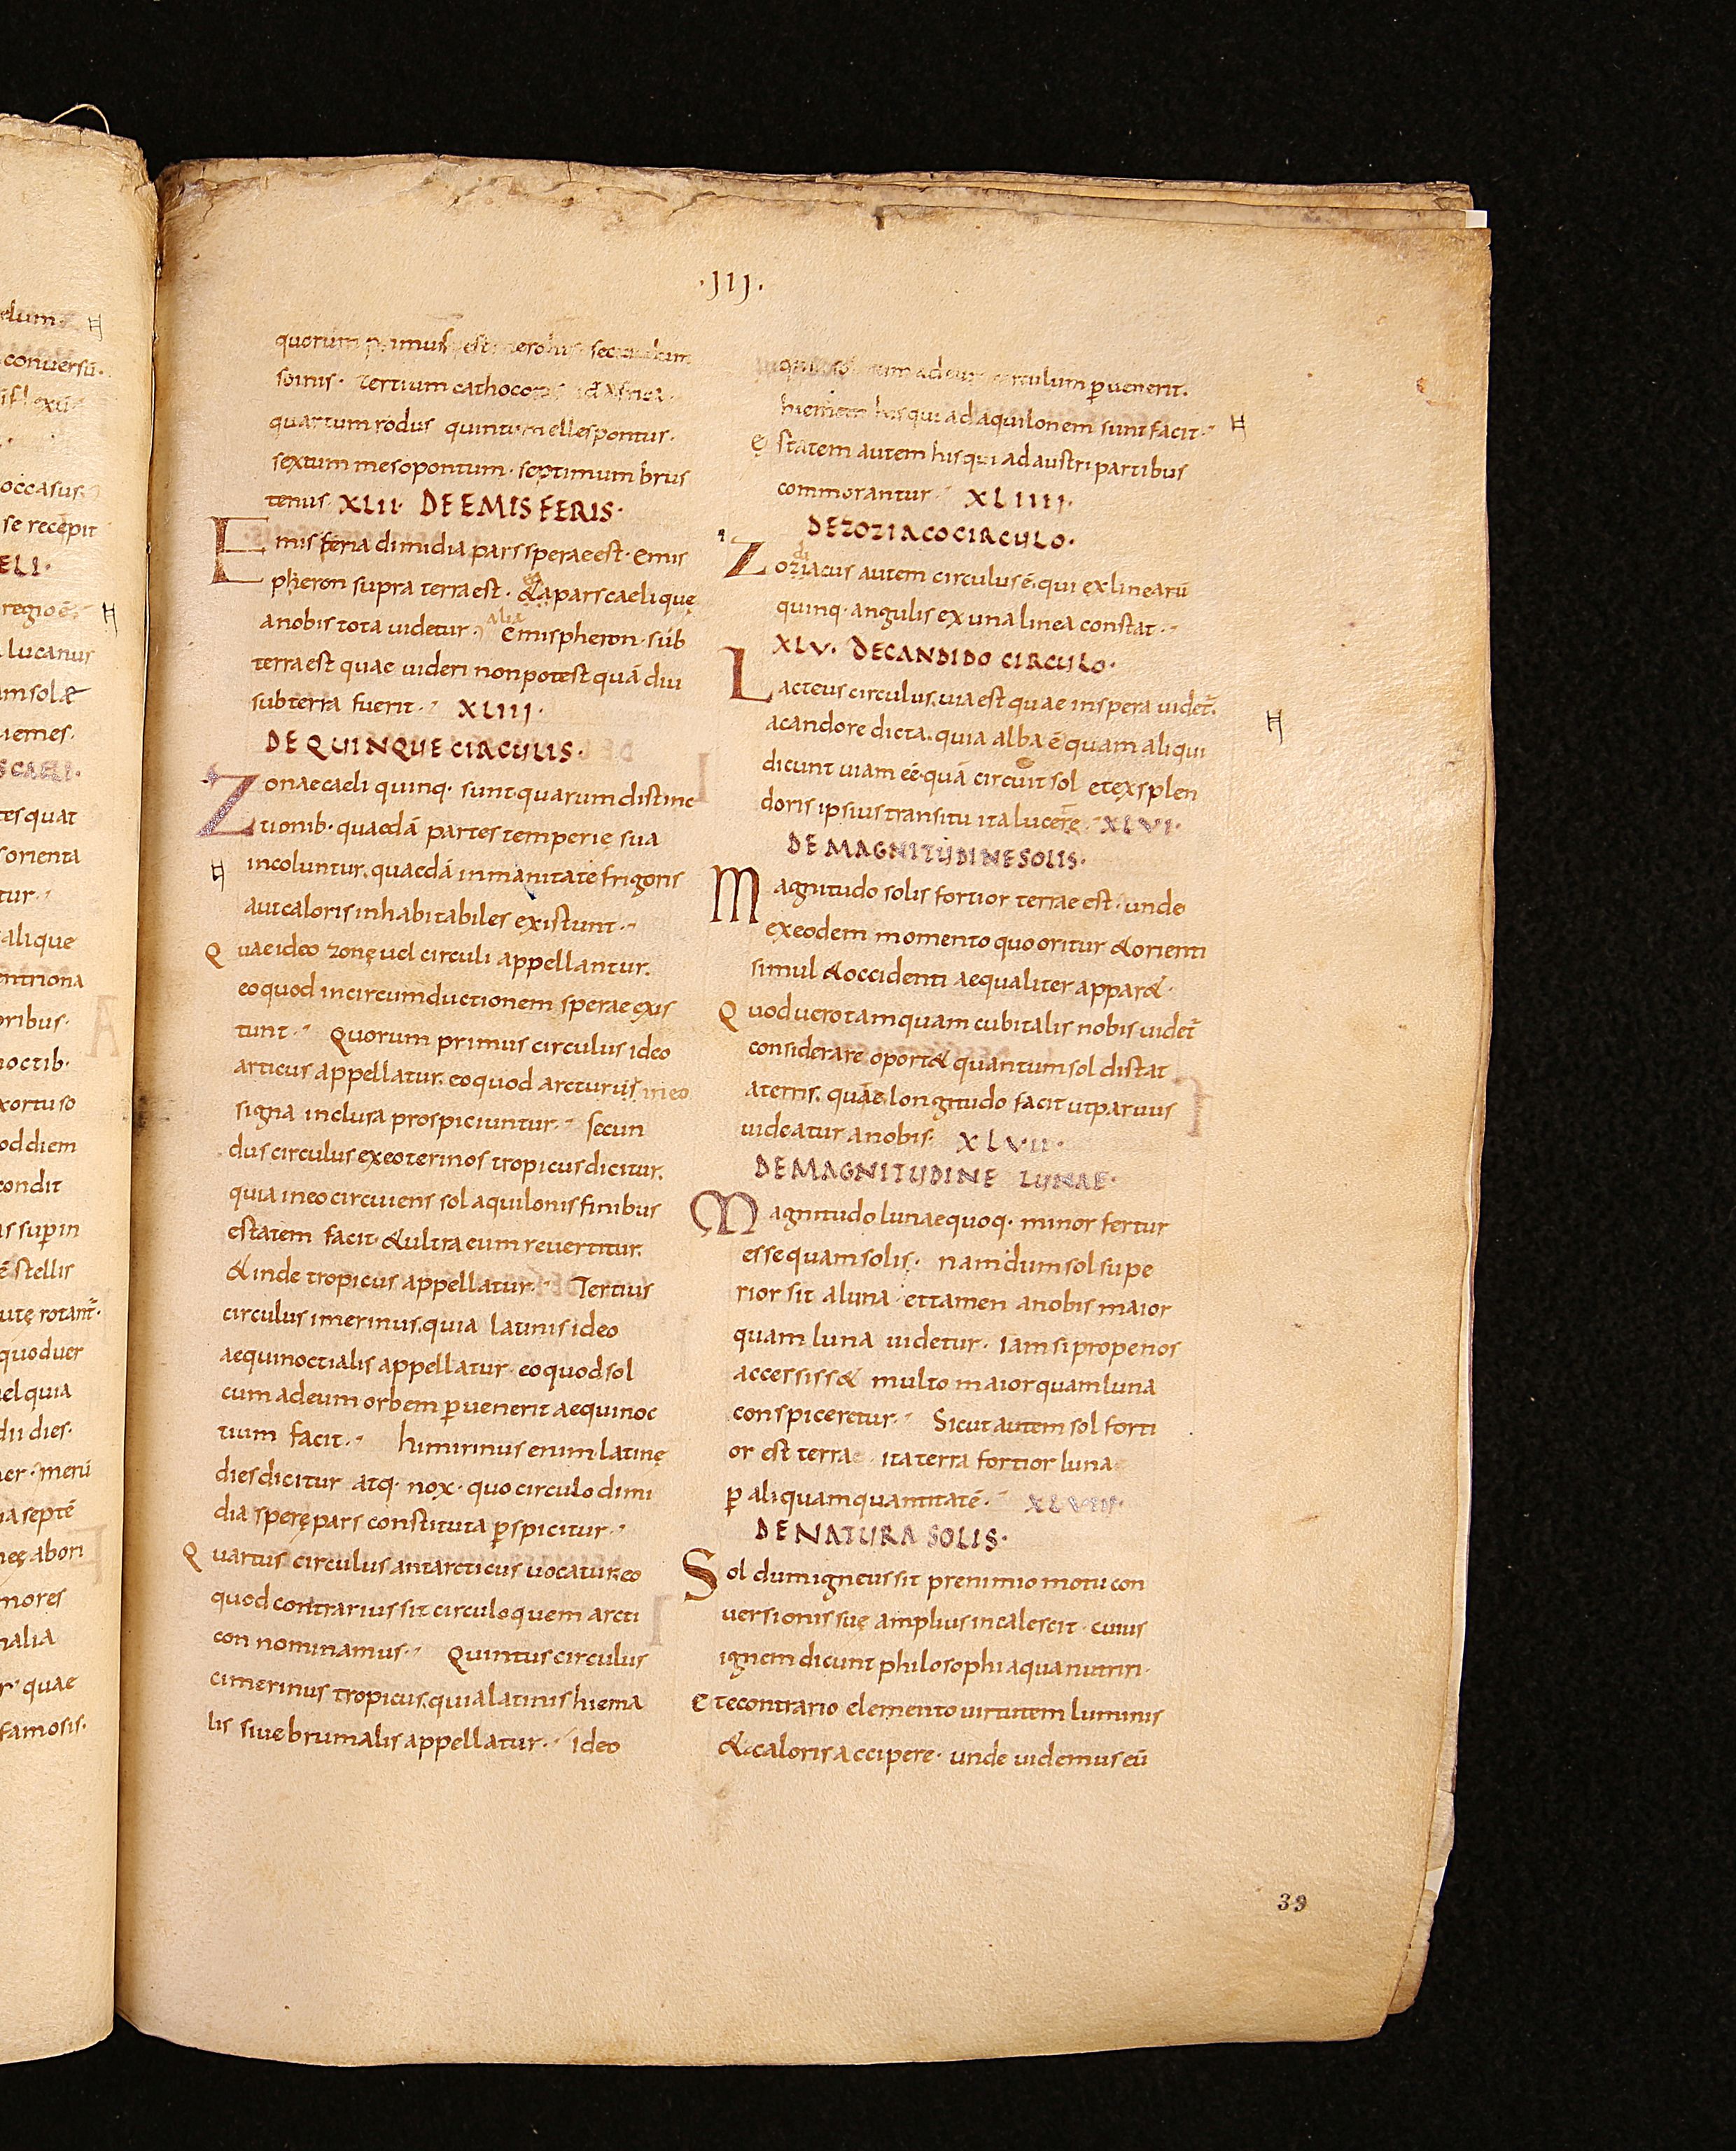 elum
conuersū·
occasus
se recepit
ELI·
regio ē
lucanus
am sol &
iemes·
S CAELI·
tes quat
s orienta
tur
alique
entriona
oribus·
noctib·
xortu so
od diem
condit
is sup in
ē stellis
rotant̄·
quod uer
uel quia
dii dies·
a septē
abori
mores
nalia
r quae
famosis·
·III·
quorum primus est
soinis· tertium
quartum rodus quintum ellespontus·
sextum mesopontum· septimum brus
tenus· XLII· DE EMISFERIS·
Emisferia dimidia pars sperae est· emis
pheron supra terra est· &a pars caeli quę
a nobis tota uidetur· alia emispheron· sub
terra est quae uideri non potest quā diu
sub terra fuerit· XLIII·
DE QUINQUE CIRCULIS·
Zonae caeli quinq· sunt quarum distinc
tionib· quaedā partes temperię sua
incoluntur, quaedā inmanitate frigoris
aut caloris inhabitabiles existunt·
Quae ideo zonę uel circuli appellantur,
eo quod in circumductionem sperae exis
tunt· Quorum primus circulus ideo
articus appellatur, eo quod arcturus in eo
signa inclusa prospiciuntur· secun
dus circulus exeoterinos tropicus dicitur,
quia in eo circuiens sol aquilonis finibus
estatem facit· & ultra eum reuertitur,
& inde tropicus appellatur· Tertius
circulus imerinus, quia latinis ideo
aequinoctialis appellatur· eo quod sol
cum ad eum orbem ꝑuenerit aequinoc
tium facit· himirinus enim latinę
dies dicitur atq· nox· quo circulo dimi
dia sperę pars constituta ꝑspicitur·
Quartus circulus antarcticus uocatur, eo
quod contrarius sit circulo quem arcti
con nominamus· Quintus circulus
cimerinus tropicus, quia latinis hiema
lis siue brumalis appellatur· ideo
circulum ꝑuenerit·
hiemem his qui ad aquilonem sunt facit·
ęstatem autem his qui ad austri partibus
commorantur· XLIIII·
DE ZOZIACO CIRCULO·
di
Zoziacus autem circulus ē, qui ex linearū
quinq· angulis ex una linea constat·
XLV· DE CANDIDO CIRCULO·
Lacteus circulus, uia est quae in spera uidet̄,
a candore dicta, quia alba ē quam aliqui
dicunt uiam eē· quā circuit sol et ex splen
doris ipsius transitu ita lucere· XLVI·
DE MAGNITUDINE SOLIS·
Magnitudo solis fortior terrae est· unde
ex eodem momento quo oritur & orienti
simul & occidenti aequaliter appar&·
Quod uero tamquam cubitalis nobis uidet̄
considerare oport& quantum sol distat
a terris, quae longitudo facit ut paruus
uideatur a nobis· XLVII·
DE MAGNITUDINE LUNAE·
Magnitudo lunae quoq· minor fertur
esse quam solis· nam dum sol supe
rior sit a luna et tamen a nobis maior
quam luna uidetur· iam si prope nos
accessiss& multo maior quam luna
conspiceretur· Sicut autem sol forti
or est terrae ita terra fortior luna
ꝑ aliquam quantitatē· XLVIII·
DE NATURA SOLIS·
Sol dum igneus sit pre nimio motu con
uersionis suę amplius incalescit· cuius
ignem dicunt philosophi aqua nutriri·
et e contrario elemento uirtutem luminis
& caloris accipere· unde uidemus eū
39